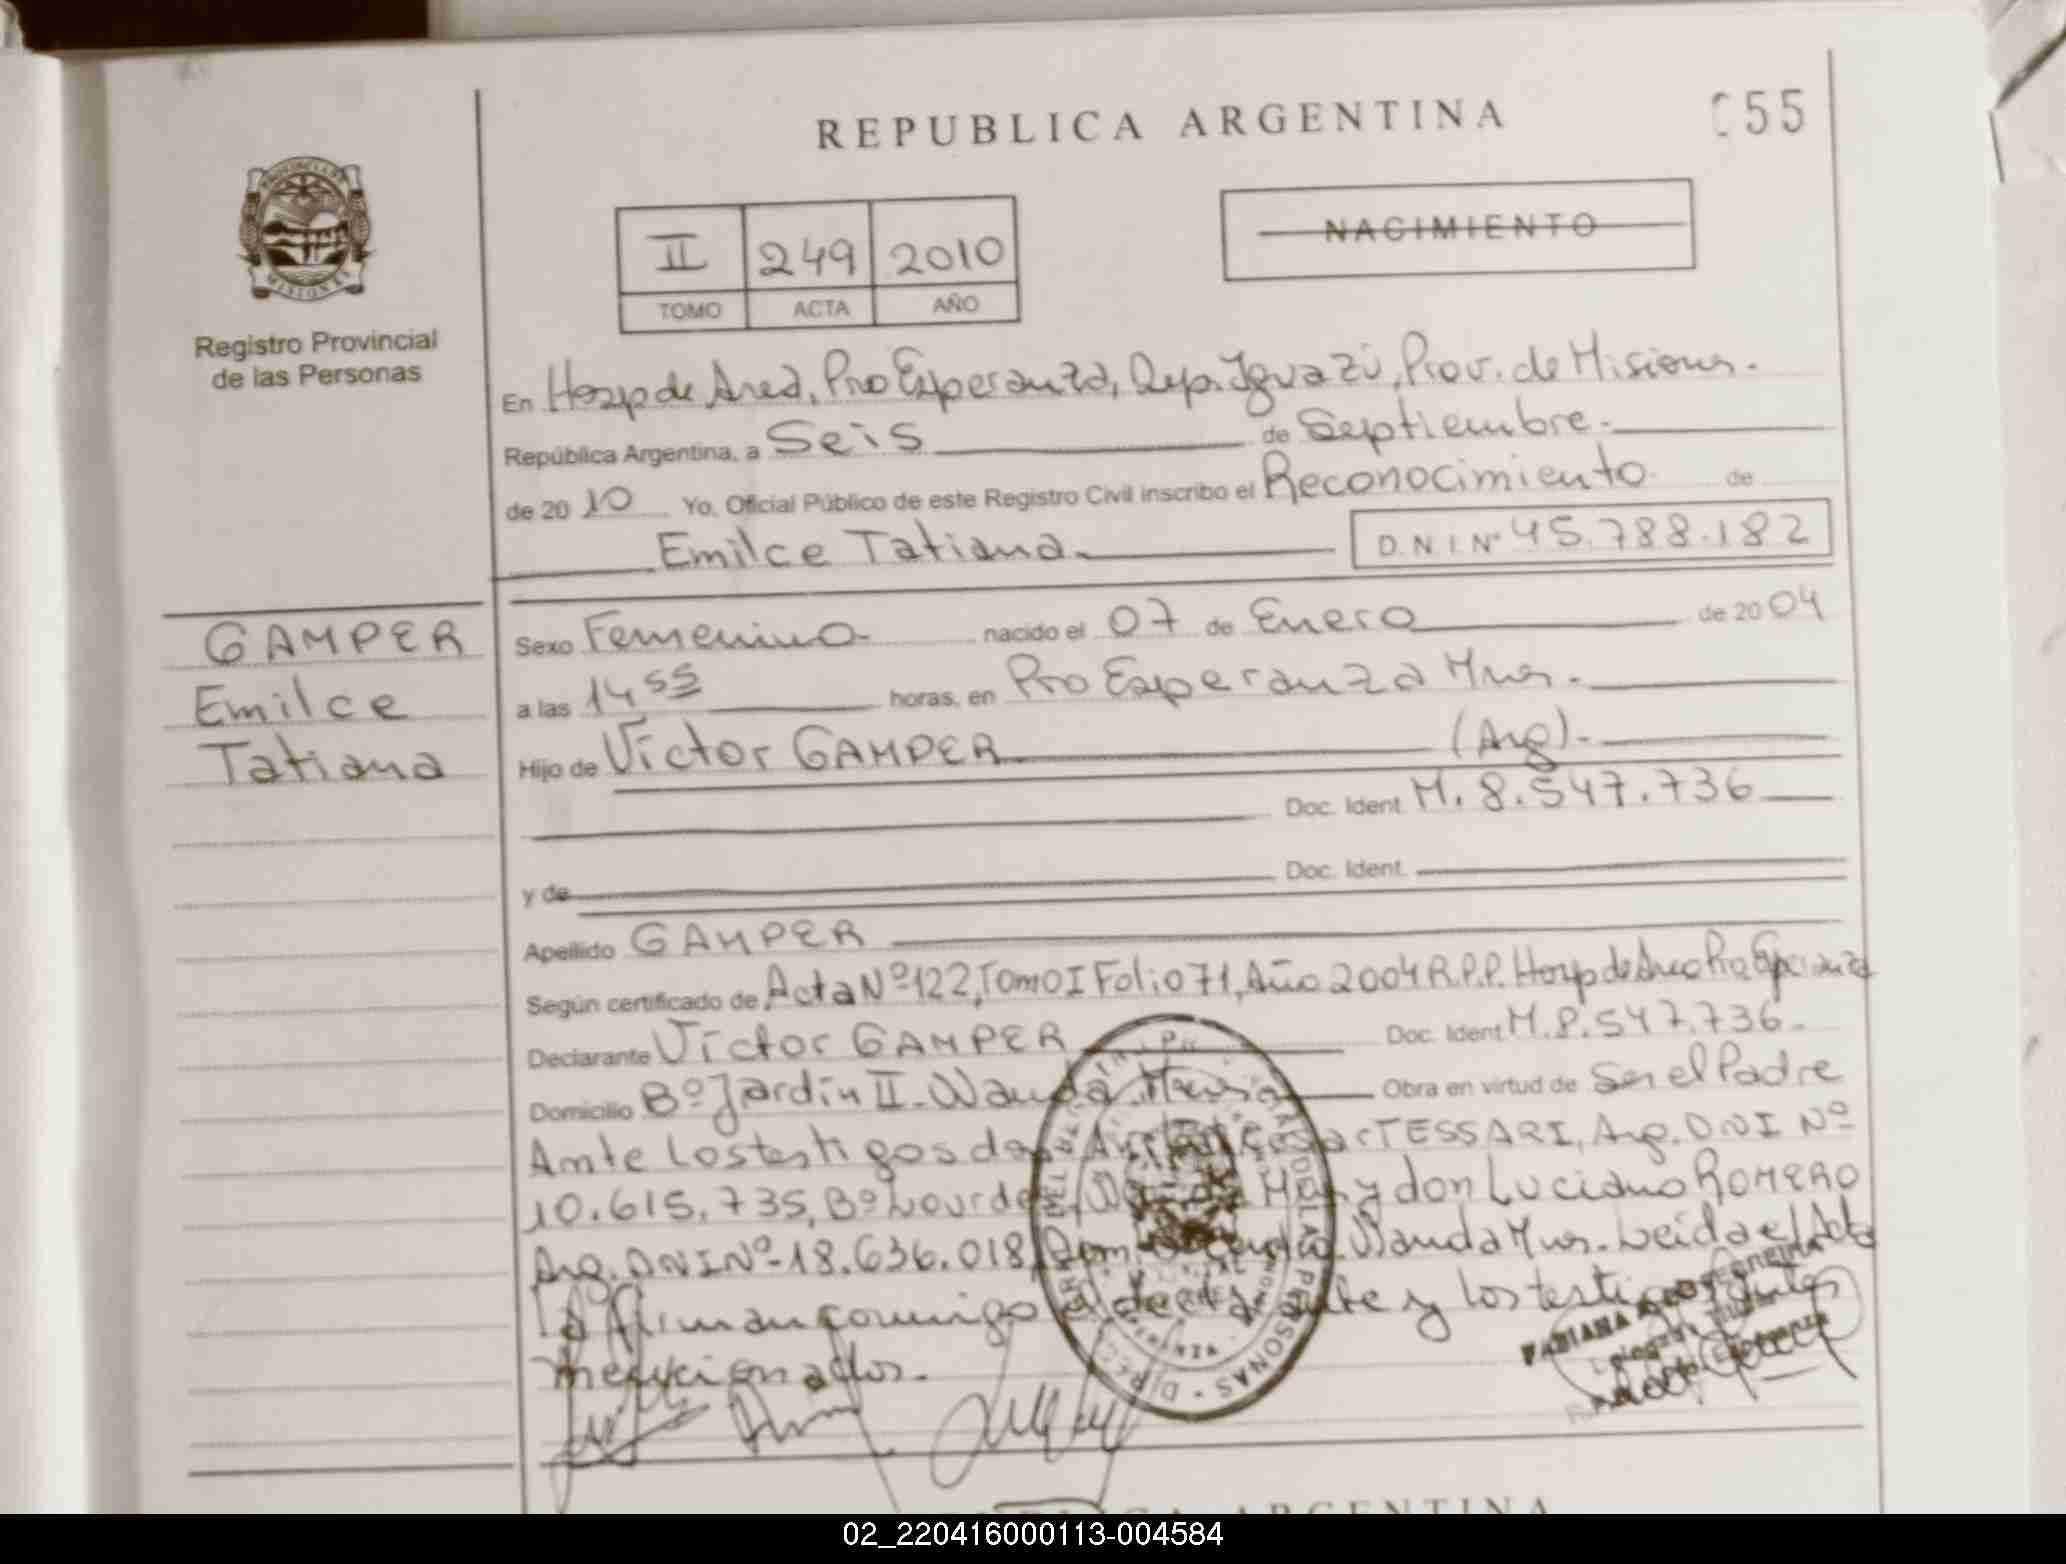 REPUBLICA ARGENTINA
55
MISIONES
Registro Provincial
de las Personas
II 249 2010
TOMO ACTA AÑO
NACIMIENTO
En Hosp de Area, Pto Esperanza, Dep. Iguazú, Prov. de Misiones.
República Argentina, a Seis de Septiembre.
de 2010 Yo, Oficial Público de este Registro Civil inscribo el Reconocimiento de
Emilce Tatiana. D.N.I. Nº 45.788.182
GAMPER
Emilce
Tatiana
Sexo Femenino nacido el 07 de Enero de 2004
a las 14 55 horas, en Pto Esperanza Mnes.
Hijo de Víctor GAMPER (Arg).
Doc. Ident M. 8.547.736
y de Doc. Ident.
Apellido GAMPER
Según certificado de Acta Nº 122, Tomo I Folio 71, Año 2004 R.P.P. Hosp de Area Pto Esperanza
Declarante Víctor GAMPER Doc. Ident M. 8.547.736.
Domicilio Bº Jardín II. Wanda. Mnes Obra en virtud de Ser el Padre
Ante los testigos don TESSARI, Arg. DNI Nº
10.615.735, Bº Lourdes, Wanda Mnes y don Luciano ROMERO
Arg. DNI Nº 18.636.018, Wanda Mnes. Leída el Acta
la firman conmigo el declarante y los testigos antes
mencionados.
FABIANA
REPUBLICA ARGENTINA
02_220416000113-004584